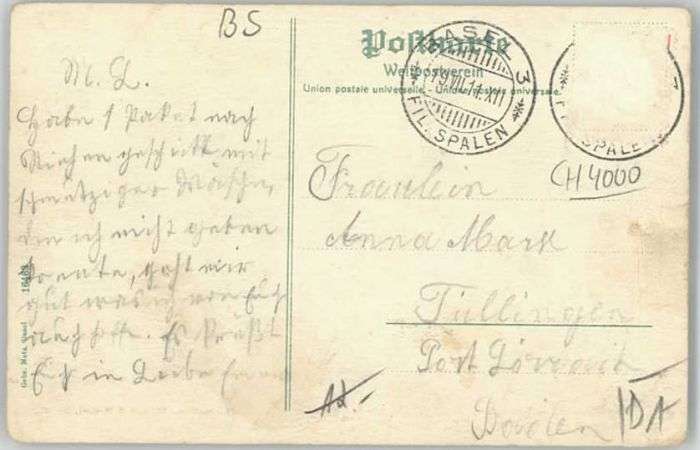 BS
Postkarte
Weltpostverein
Union postale universelle. - Union postale universale.
BASEL 3
19.VII.11.XII
FIL. SPALEN
FIL. SPALEN
CH4000
M. L.
Habe 1 Paket nach
Riehen geschickt mit
schmutziger Wäsche,
den ich nicht geben
konnte, geht mir
gut was ich von Euch
auch hoffe. Es grüßt
Euch in Liebe
Fräulein
Anna Mark
Tüllingen
Post Lörrach
Baden
Gebr. Metz, Basel
AX.-
IDA